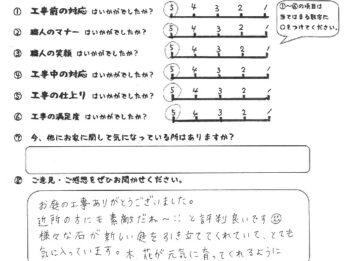 ① 工事前の対応 はいかがでしたか？ 5 4 3 2 1
② 職人のマナー はいかがでしたか？ 5 4 3 2 1
③ 職人の笑顔 はいかがでしたか？ 5 4 3 2 1
④ 工事中の対応 はいかがでしたか？ 5 4 3 2 1
⑤ 工事の仕上り はいかがでしたか？ 5 4 3 2 1
⑥ 工事の満足度 はいかがでしたか？ 5 4 3 2 1
①〜⑥の項目は
当てはまる数字に
○をつけてください。
⑦ 今、他にお家に関して気になっている所はありますか？
⑧ ご意見・ご感想をぜひお聞かせください。
お庭の工事ありがとうございました。
近所の方にも素敵だね〜と評判良いです
様々な石が新しい庭を引き立ててくれていて、とても
気に入っています。木、花が元気に育ってくれるように